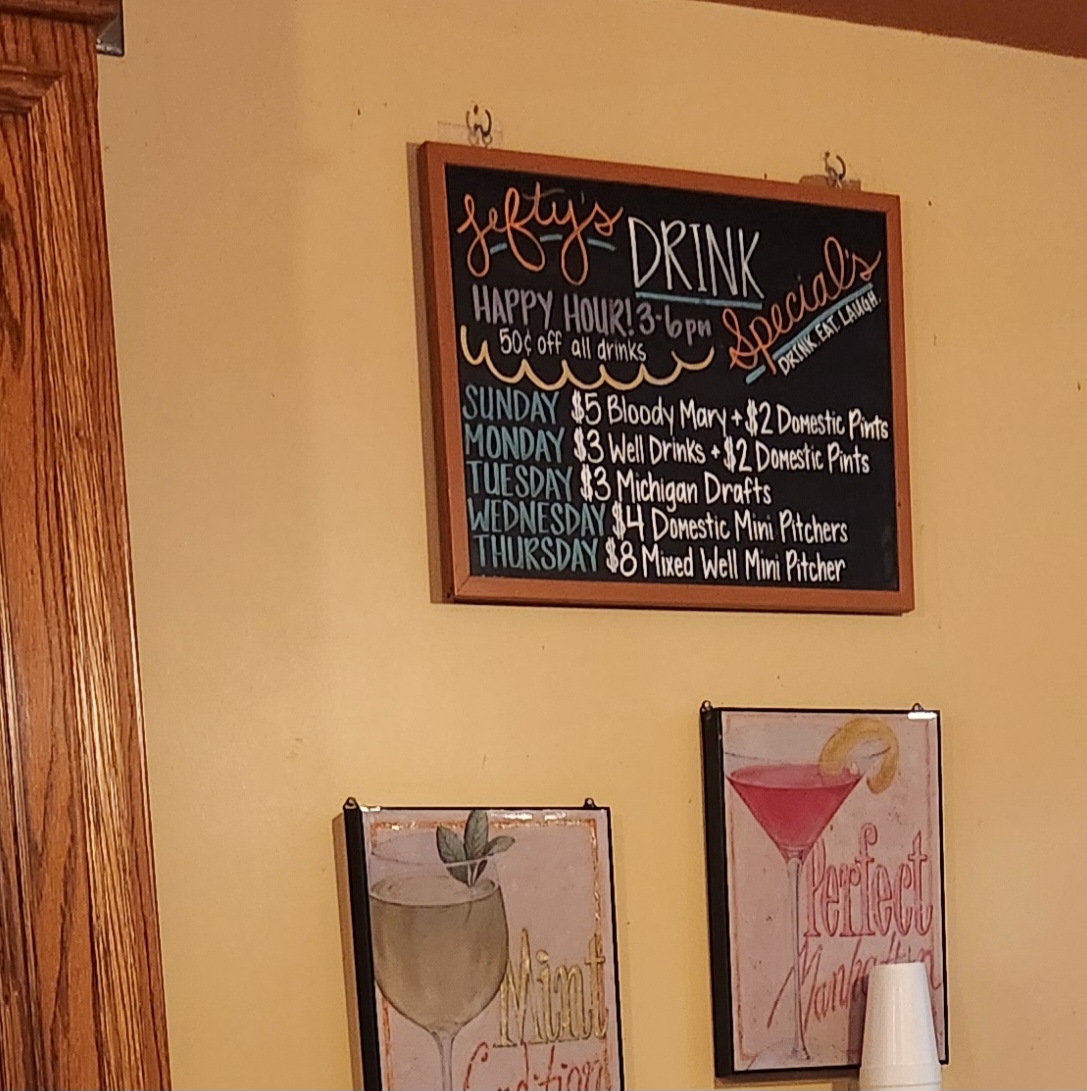 Lefty's DRINK Special's
DRINK. EAT. LAUGH.
HAPPY HOUR! 3-6pm
50¢ off all drinks
SUNDAY $5 Bloody Mary + $2 Domestic Pints
MONDAY $3 Well Drinks + $2 Domestic Pints
TUESDAY $3 Michigan Drafts
WEDNESDAY $4 Domestic Mini Pitchers
THURSDAY $8 Mixed Well Mini Pitcher
Perfect
Manhattan
Mint
Condition